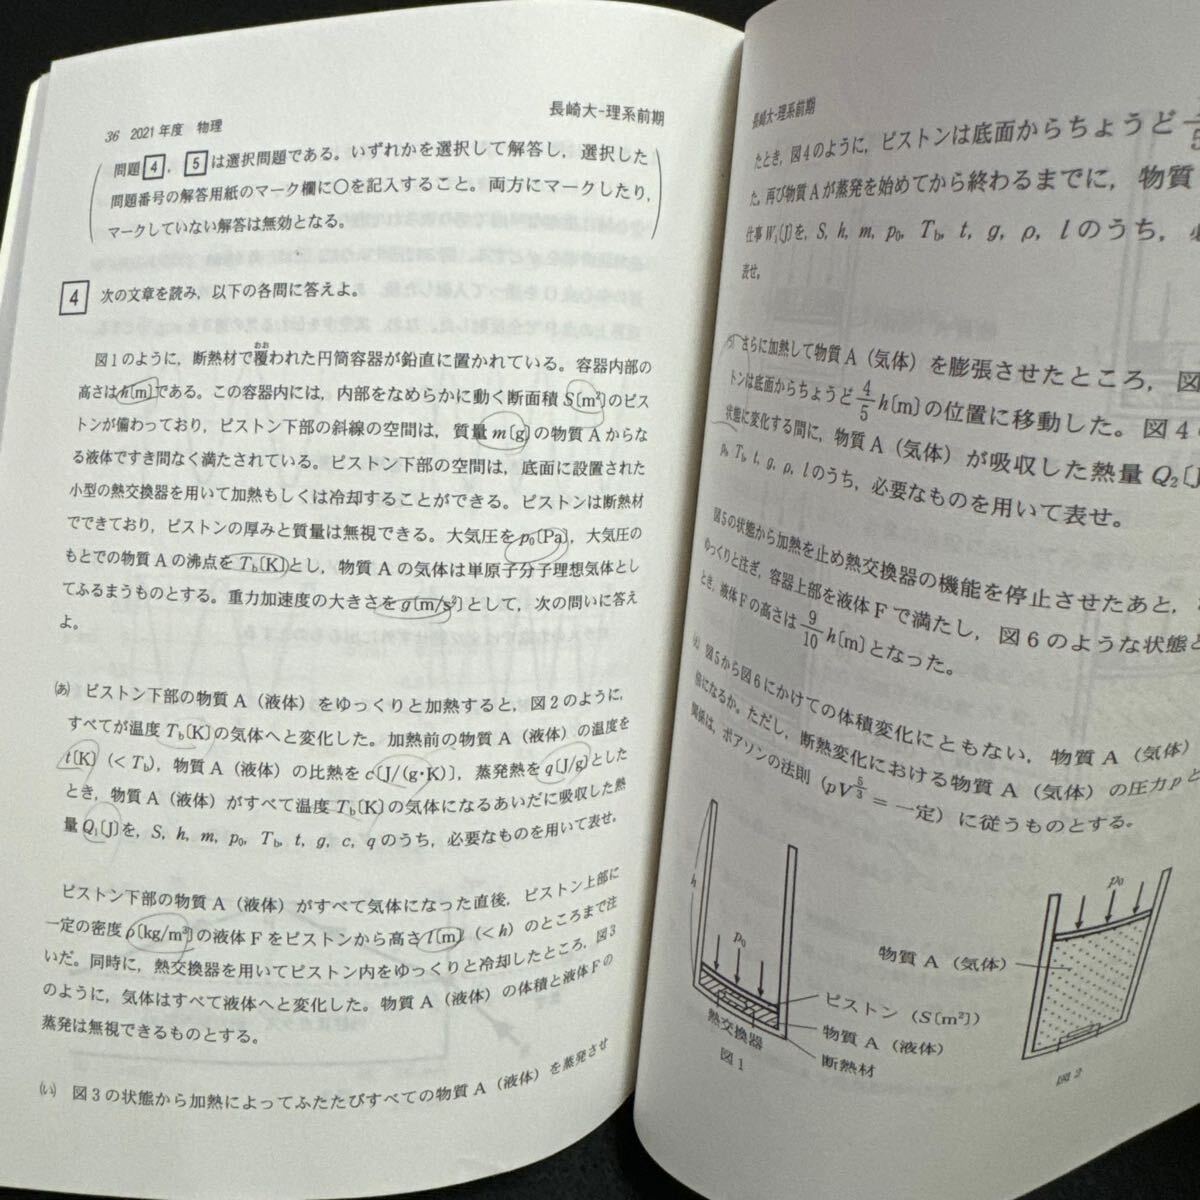 36 2021年度 物理
長崎大-理系前期
問題4，5は選択問題である。いずれかを選択して解答し，選択した
問題番号の解答用紙のマーク欄に○を記入すること。両方にマークしたり，
マークしていない解答は無効となる。
4 次の文章を読み，以下の各問に答えよ。
おお
図1のように，断熱材で覆われた円筒容器が鉛直に置かれている。容器内部の
高さはh〔m〕である。この容器内には，内部をなめらかに動く断面積S〔m²〕のピス
トンが備わっており，ピストン下部の斜線の空間は，質量m〔g〕の物質Aからな
る液体ですき間なく満たされている。ピストン下部の空間は，底面に設置された
小型の熱交換器を用いて加熱もしくは冷却することができる。ピストンは断熱材
でできており，ピストンの厚みと質量は無視できる。大気圧をp₀〔Pa〕，大気圧の
もとでの物質Aの沸点をT_b〔K〕とし，物質Aの気体は単原子分子理想気体とし
てふるまうものとする。重力加速度の大きさをg〔m/s²〕として，次の問いに答え
よ。
(あ) ピストン下部の物質A（液体）をゆっくりと加熱すると，図2のように，
すべてが温度T_b〔K〕の気体へと変化した。加熱前の物質A（液体）の温度を
t〔K〕（＜T_b），物質A（液体）の比熱をc〔J/(g・K)〕，蒸発熱をq〔J/g〕とした
とき，物質A（液体）がすべて温度T_b〔K〕の気体になるあいだに吸収した熱
量Q₁〔J〕を，S, h, m, p₀, T_b, t, g, c, qのうち，必要なものを用いて表せ。
ピストン下部の物質A（液体）がすべて気体になった直後，ピストン上部に
一定の密度ρ〔kg/m³〕の液体Fをピストンから高さl〔m〕（＜h）のところまで注
いだ。同時に，熱交換器を用いてピストン内をゆっくりと冷却したところ，図3
のように，気体はすべて液体へと変化した。物質A（液体）の体積と液体Fの
蒸発は無視できるものとする。
(い) 図3の状態から加熱によってふたたびすべての物質A（液体）を蒸発させ
長崎大-理系前期
たとき，図4のように，ピストンは底面からちょうど
た。再び物質Aが蒸発を始めてから終わるまでに，物質
仕事W₁〔J〕を，S, h, m, p₀, T_b, t, g, ρ, lのうち，
表せ。
(う) さらに加熱して物質A（気体）を膨張させたところ，図
トンは底面からちょうど4/5 h〔m〕の位置に移動した。図4の
状態に変化する間に，物質A（気体）が吸収した熱量Q₂〔J
p₀, T_b, t, g, ρ, lのうち，必要なものを用いて表せ。
図5の状態から加熱を止め熱交換器の機能を停止させたあと，
ゆっくりと注ぎ，容器上部を液体Fで満たし，図6のような状態と
とき，液体Fの高さは9/10 h〔m〕となった。
(え) 図5から図6にかけての体積変化にともない，物質A（気体）
倍になるか。ただし，断熱変化における物質A（気体）の圧力pと
関係は，ポアソンの法則（pV^{5/3}＝一定）に従うものとする。
h
p₀
ピストン（S〔m²〕）
物質A（液体）
断熱材
熱交換器
図1
p₀
物質A（気体）
図2